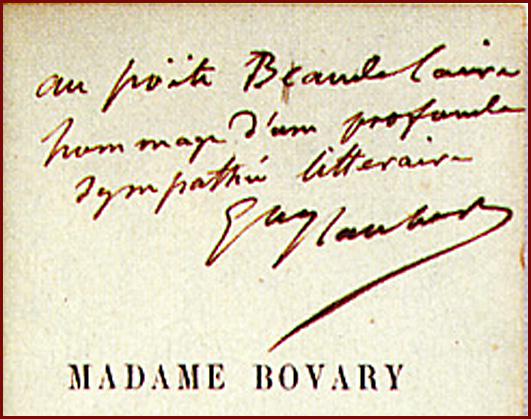 au poëte Beaudelaire
hommage d'une profonde
sympathie litteraire
Gve Flaubert
MADAME BOVARY